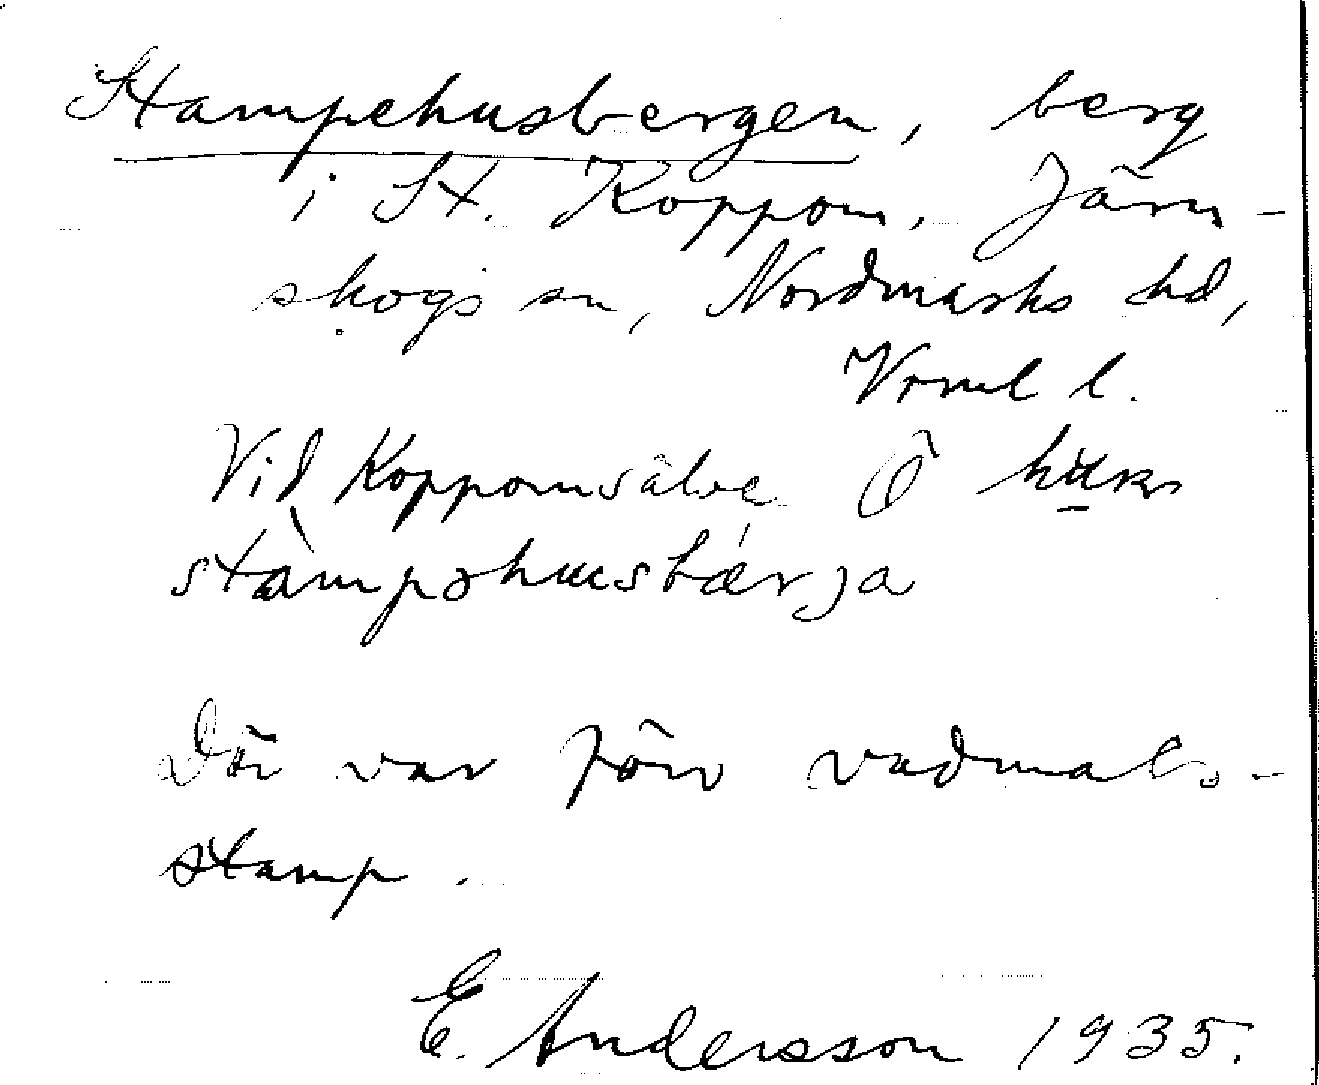 Stampehusbergen, berg
i St. Koppom, Järn-
skogs sn, Nordmarks hd,
Vrml l.
Vid Koppomsälve Ö
stàmpəhusbárja
Där var förr vadmals-
stamp.
E. Andersson 1935.